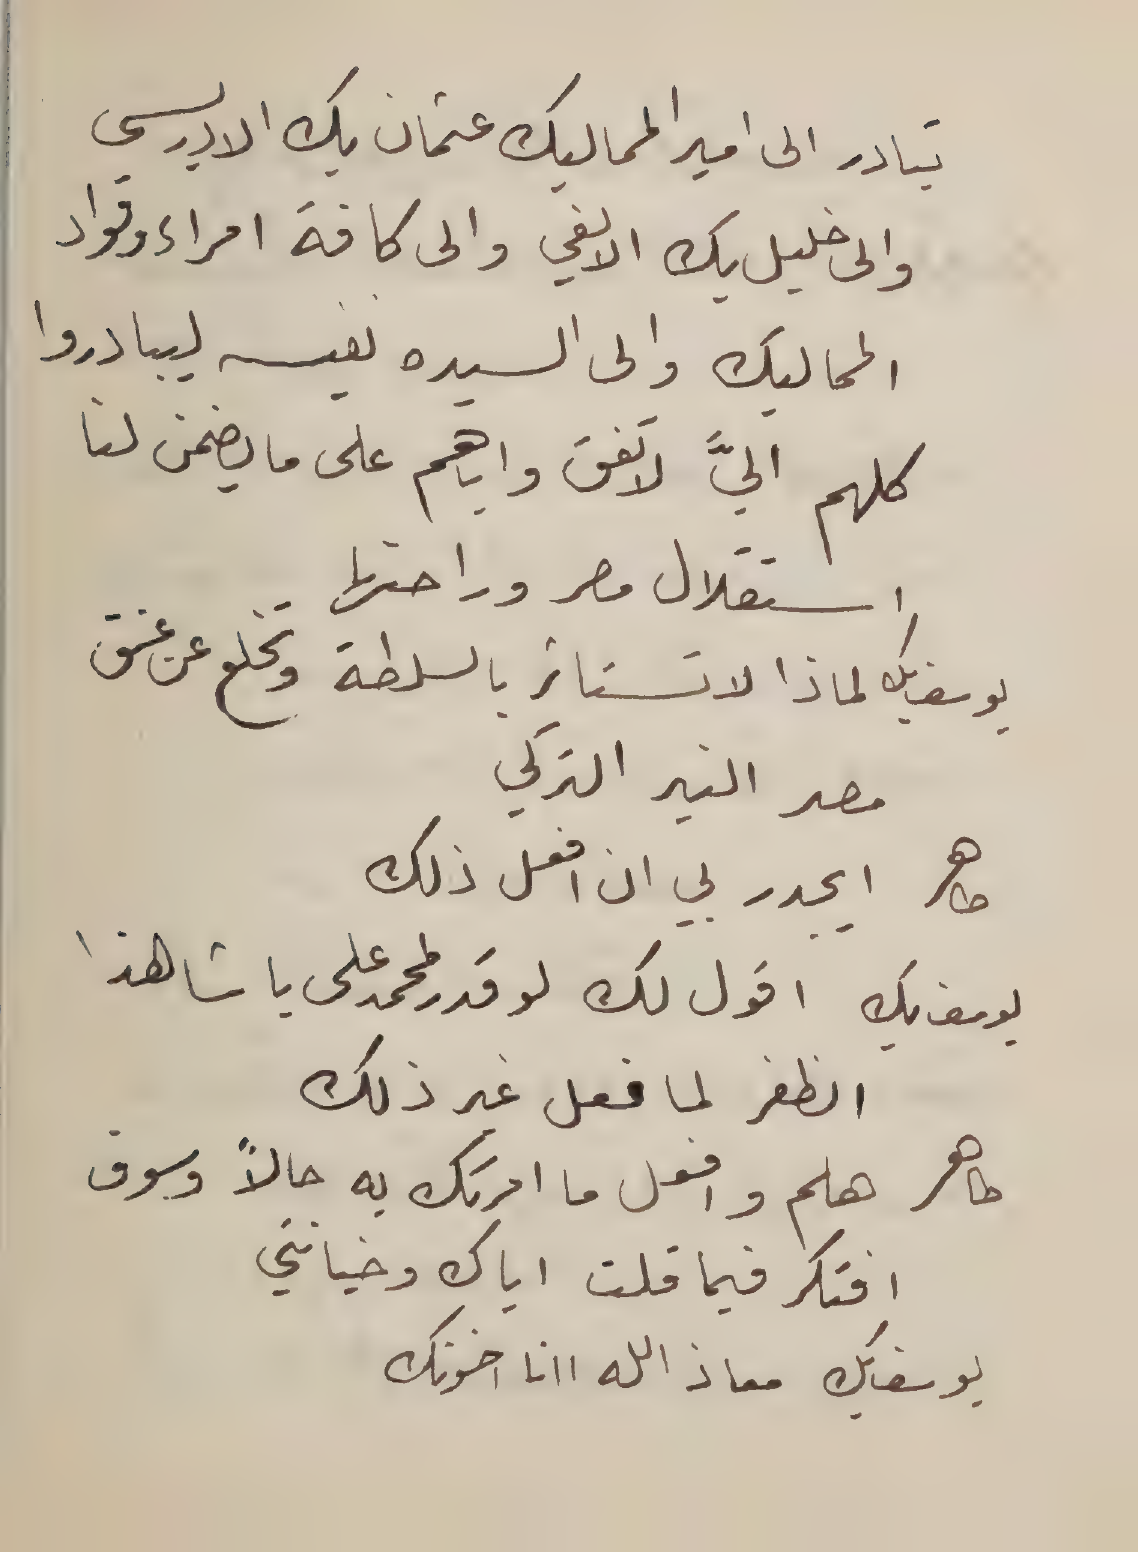 تبادر الى امير المماليك عثمان بك الادريسي
والى خليل بك الالفي والى كافة امراء وقواد
المماليك والى السيده نفيسه ليبادروا
كلهم اليَّ لاتفق واياهم على ما يضمن لنا
استقلال مصر وراحتها
يوسف بك لماذا لا تستاثر بالسلطة وتخلع عن عنق
مصر النير التركي
طاهر ايجدر بي ان افعل ذلك
يوسف بك اقول لك لو قدر لمحمد على باشا هذا
الظفر لما فعل غير ذلك
طاهر هلم وافعل ما امرتك به حالاً وسوف
افتكر فيما قلت اياك وخيانتي
يوسف بك معاذ الله اانا اخونك